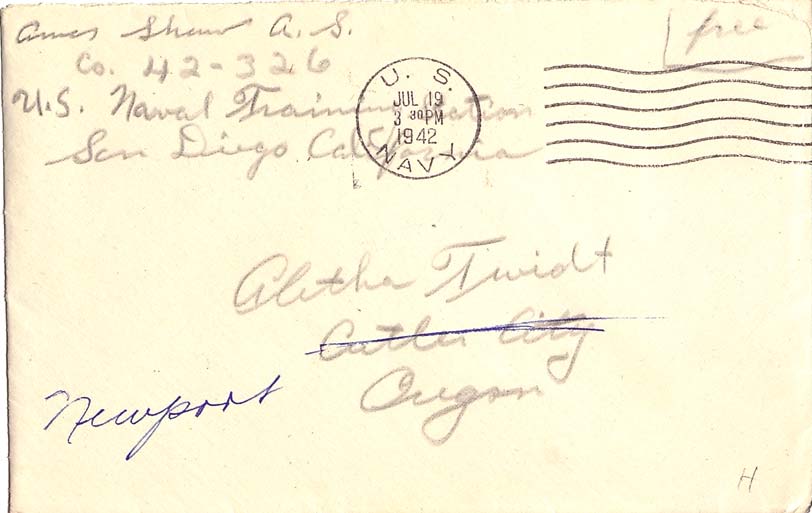 Ames Shaw A. S.
Co. 42-326
U.S. Naval Training Station
San Diego California
free
U. S.
JUL 19
3 30 PM
1942
NAVY
Aletha Twidt
Cutler City
Oregon
Newport
H